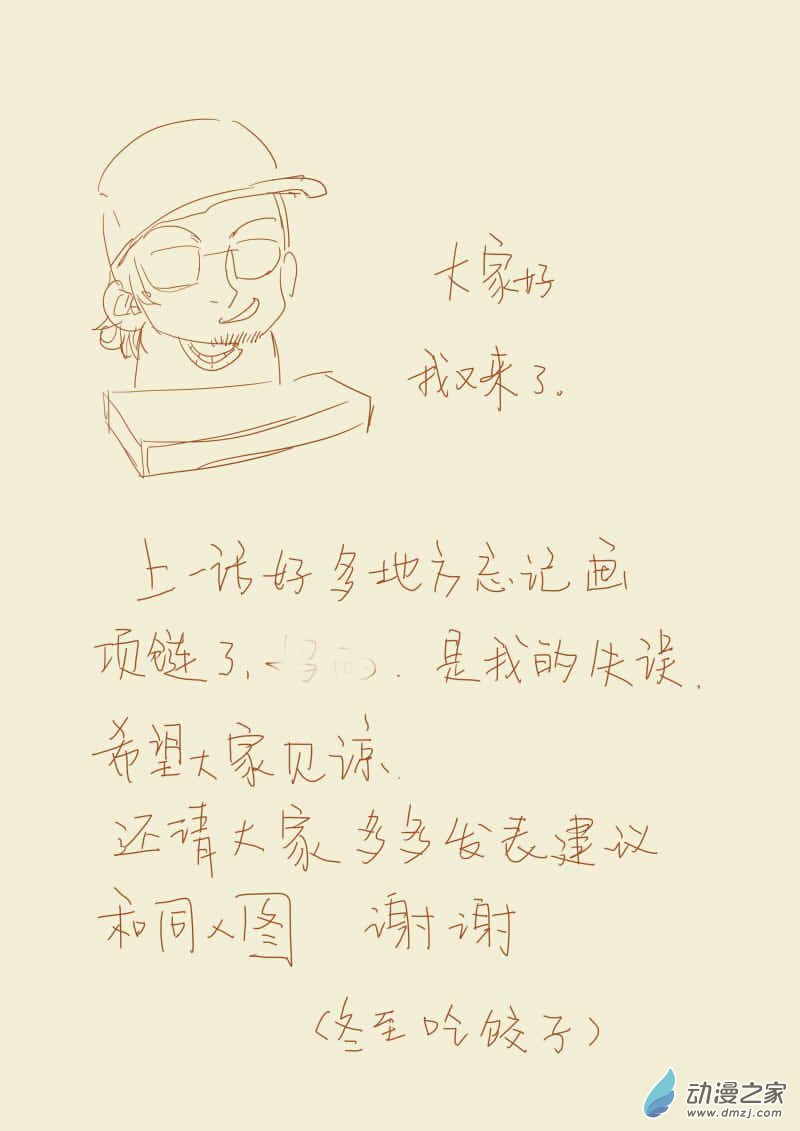 大家好
我又来了。
上一话好多地方忘记画
项链了,是我的失误.
希望大家见谅.
还请大家多多发表建议
和同人图 谢谢
(冬至吃饺子)
动漫之家
www.dmzj.com